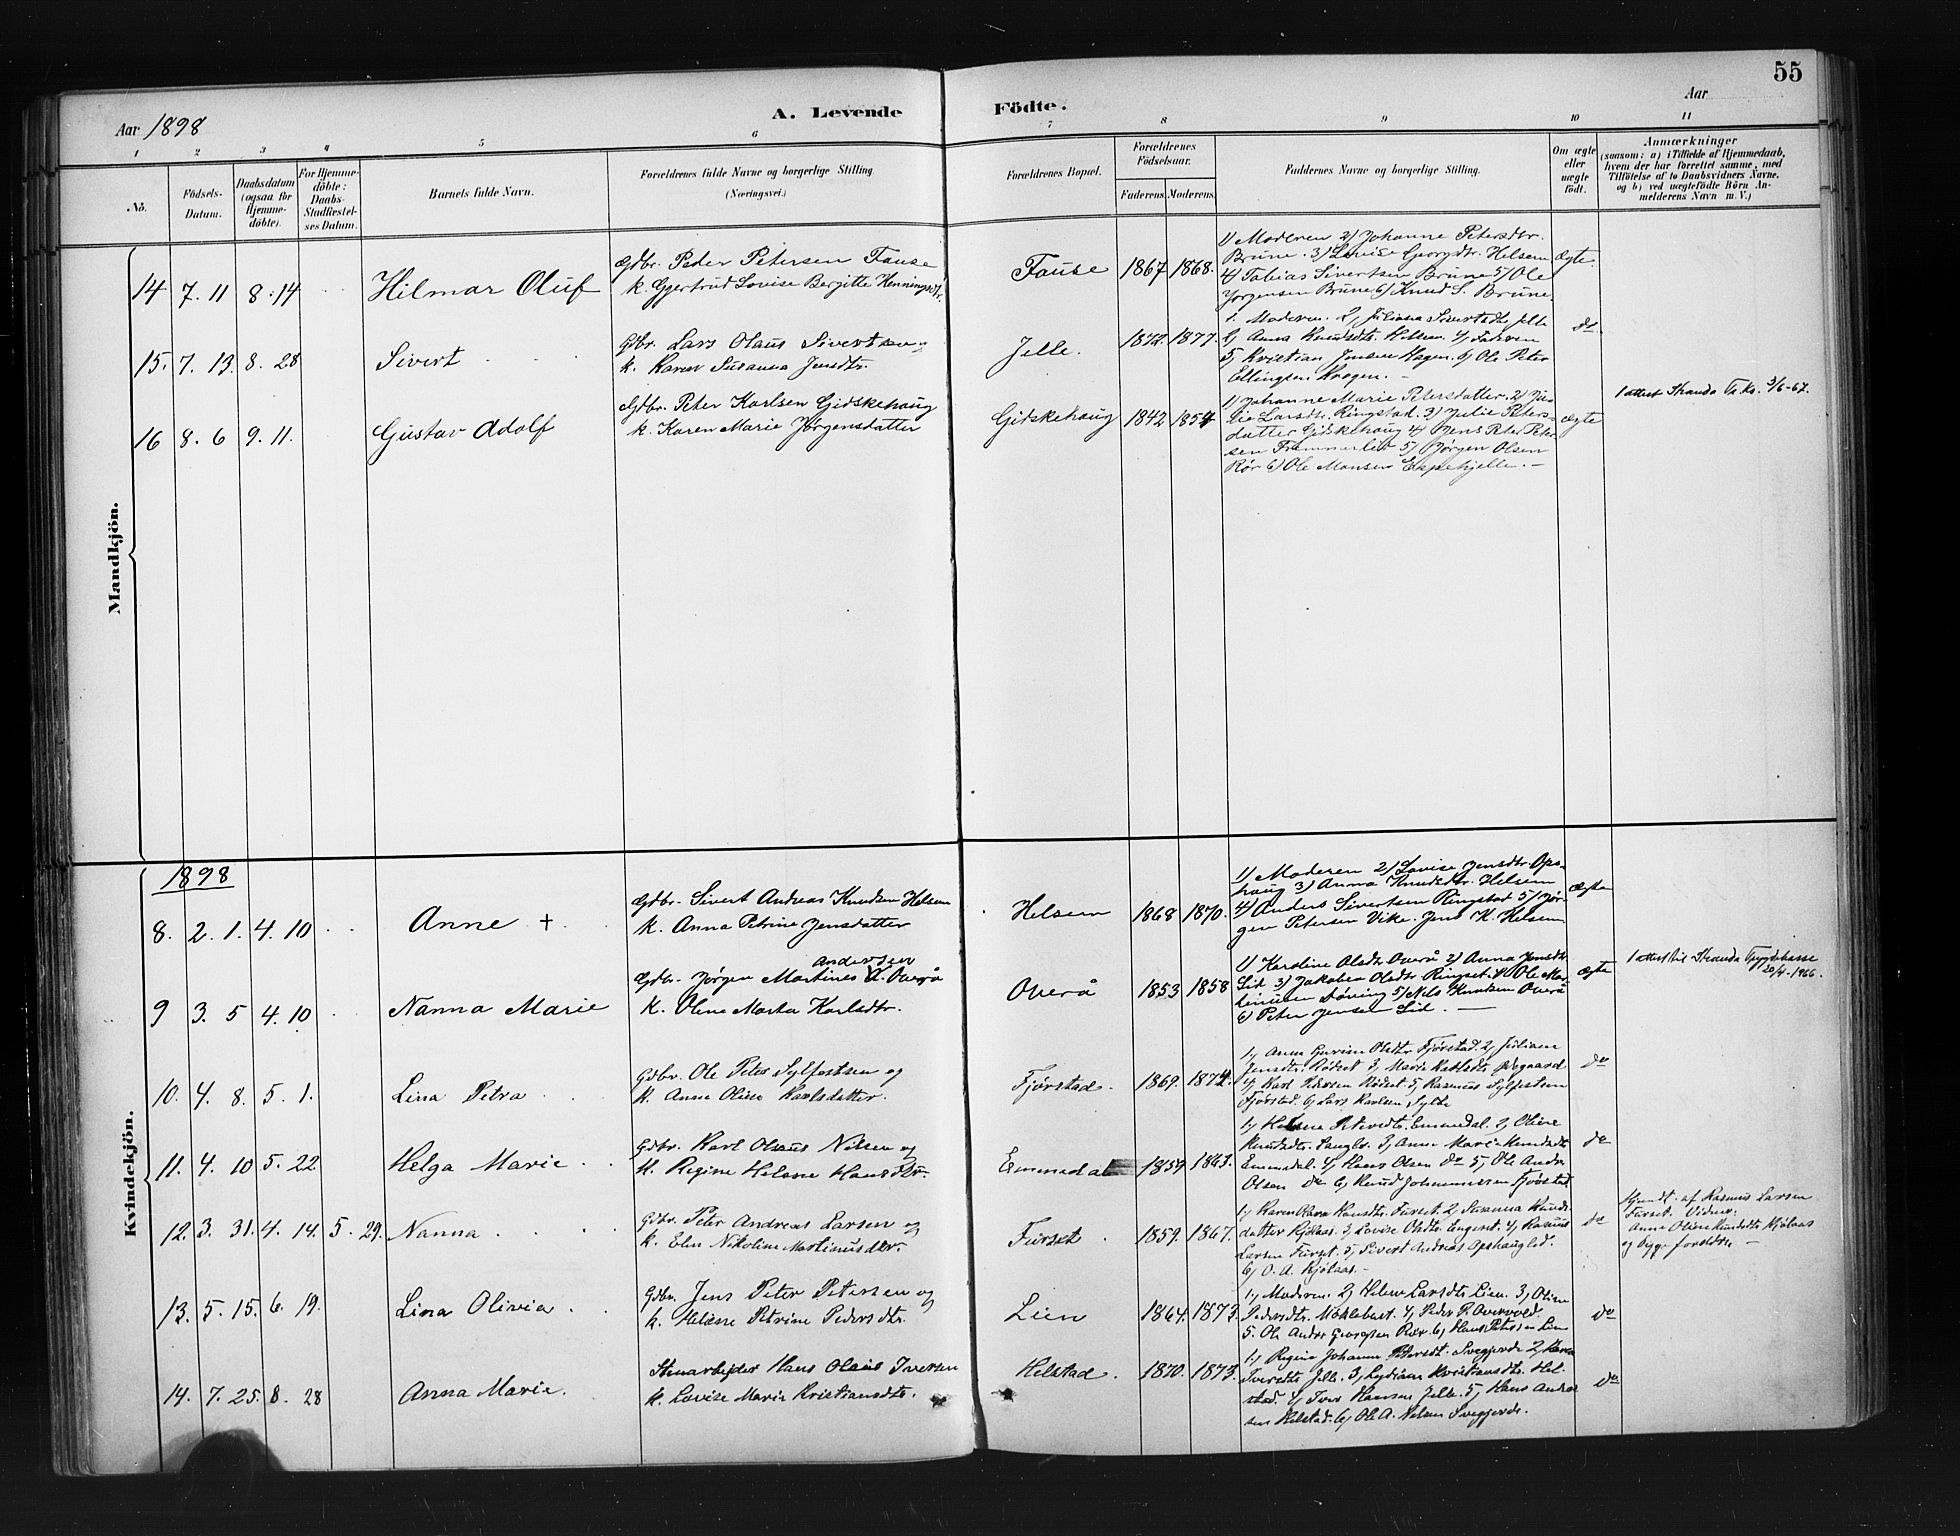 55
Aar 1898
A. Levende
Födte.
Aar
1
2
3
4
5
6
7
8
9
10
11
No.
Födsels-
Datum.
Daabsdatum
(ogsaa for
Hjemme-
döbte).
For Hjemme-
döbte:
Daabs-
Stadfæstel-
ses Datum.
Barnets fulde Navn.
Forældrenes fulde Navne og borgerlige Stilling
(Næringsvei.)
Forældrenes Bopæl.
Forældrenes
Födselsaar.
Faderens.
Moderens.
Faddernes Navne og borgerlige Stilling.
Om ægte
eller
uægte
födt.
Anmærkninger
(saasom: a) i Tilfælde af Hjemmedaab,
hvem der har forrettet samme, med
Tilföielse af to Daabsvidners Navne.
og b) ved uægtefödte Börn An-
melderens Navn m. V.)
Mandkjön.
14 7. 11 8. 14
Hilmar Oluf
Gdbr. Peder Petersen Fause
k. Gjertrud Lovise Bergitte Henningsdtr.
Fause
1867 1868.
1) Moderen 2) Johanne Petersdtr.
Brune. 3) Lovise Georgdtr. Helsem
4) Tobias Sivertsen Brune 5) Ole
Jørgensen Brune 6) Knud S. Brune
Ægte.
15. 7. 13. 8. 28
Sivert
Gdbr. Lars Olaus Sivertsen og
k. Karen Susanna Jensdtr.
Jelle.
1872 1877.
1. Moderen. 2, Juliana Sivertsdtr. Jelle
3, Anna Knudsdtr. Helsem. 4, Faderen
5, Kristian Jensen Hagen. 6, Ole Peter
Ellingsen Krogen. –
do
16 8. 6 9. 11.
Gustav Adolf
Gdbr. Peter Karlsen Gidskehaug
k. Karen Marie Jørgensdatter
Gidskehaug
1842 1854
1) Johanne Marie Petersdatter. 2) Ju-
lie Larsdtr. Ringstad. 3) Julie Peters-
datter Gidskehaug 4) Jens Peter Peter-
sen Framerlid 5) Jørgen Olsen
Rör 6) Ole Monsen Espehjelle. –
Ægte
1 attest Stranda T.ks. 3/6-67.
Kvindekjön.
1898
8. 2. 1. 4. 10
Anne +
Gdbr. Sivert Andreas Knudsen Helsem
k. Anna Petrine Jensdatter
Helsem
1868 1870.
1) Moderen 2) Lovise Jensdtr. Ops-
haug 3) Anna Knudsdtr. Helsem
4) Anders Sivertsen Ringstad 5) Jør-
gen Petersen Vike. Jens K. Helsem
Ægte
9 3. 5 4. 10
Nanna Marie
Andersen
Gdbr. Jørgen Martines A. Overå
k. Oline Marta Karlsdtr.
Overå
1853 1858
1) Karoline Olsdtr. Overå 2) Anna Jensdtr
Lid 3) Jakobea Olsdtr Ringset. 4) Ole Mar-
tinusen Døving 5) Nils Knutsen Overå
6) Peter Jensen Lid. –
Ægte
1 attest til Stranda Trygdekasse
20/4-1966.
10. 4. 8. 5. 1.
Lina Petra
Gdbr. Ole Peter Sylfestsen og
k. Anne Oline Karlsdatter.
Fjørstad.
1869. 1874.
1, Anne Gurine Olsdtr Fjørstad. 2, Juliane
Jensdtr. Rødset. 3, Marie Karlsdtr. Ødegaard
4, Karl Petersen Rødset. 5, Rasmus Sylfestsen
Fjørstad. 6, Lars Karlsen, Sylte
do
11. 4. 10 5. 22
Helga Marie
Gdbr. Karl Olaus Nilsen og
k. Regine Helene Hansdtr.
Emmedal
1859. 1863.
1, Helene Emmedal. 2, Oline
Knudsdtr. 3, Anne Marie Knudsdtr
Emmedal. 4, Hans Olsen do 5, Ole Andr.
Olsen do 6, Knud Johannessen Fjørstad.
do
12. 3. 31. 4. 14. 5. 29.
Nanna
Gdbr. Peter Andreas Larsen og
k. Elen Nikoline Martinusdtr.
Furset
1859. 1867.
1, Karen Hansdtr. Furset. 2, Susanna Knuds-
datter Kjölaas. 3, Lovise Olsdtr. Engeset. 4, Rasmus
Larsen Furset. 5, Sivert Andreas Opshauglid.
6, O. A. Kjölaas. –
do
Hjemdt. af Rasmus Larsen
Furset. Vidner.
Anne Oline Knudsdtr Kjölaas
og begge foreldre –
13. 5. 15. 6. 19.
Lina Olivia
Gdbr. Jens Peter Petersen og
k. Helene Petrine Pedersdtr.
Lien
1864. 1873.
1, Moderen. 2, Helene Larsdtr Lien. 3, Oline
Pedersdtr. Møklebust. 4, Peder P. Overvold.
5. Ole Andr. Georgsen Rør. 6, Hans Petersen Lien
do
14. 7. 25. 8. 28
Anna Marie.
Stenarbejder Hans Olaus Iversen
k. Lovise Marie Kristiansdtr.
Helstad.
1870. 1873.
1, Regine Johanne Petersdtr. Svegjerde 2,
Iversdtr Jelle. 3, Lydiane Kristiansdtr. Hel-
stad. 4, Iver Hansen Jelle. 5, Hans Andr
sen Helstad. 6, Ole A. Nilsen Svegjerde.
do